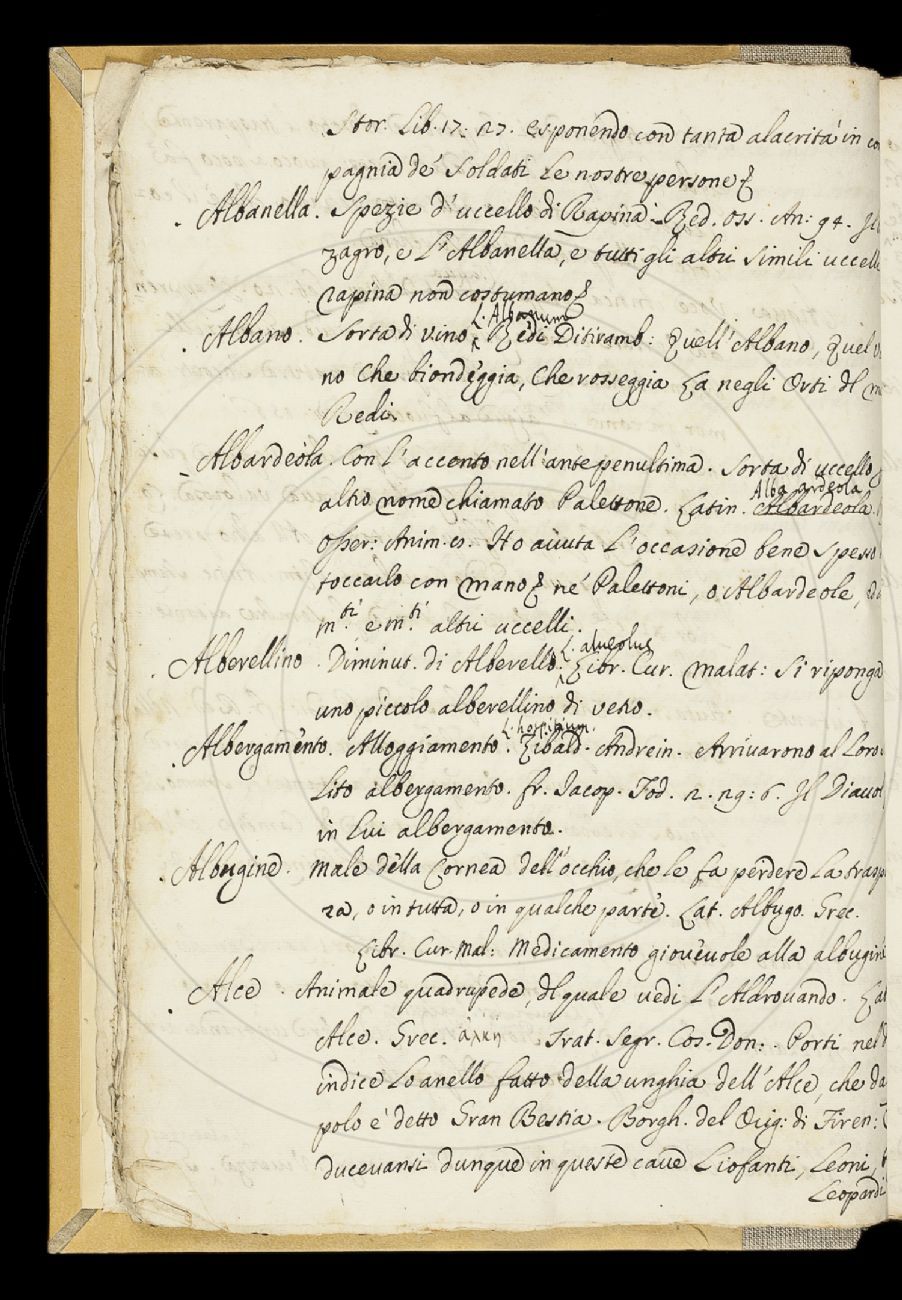 Stor. Lib. 17: 27. esponendo con tanta alacrità in co
pagnia de' Soldati le nostre persone
Albanella. Spezie d'uccello di Rapina. Red. Oss. An: 94. Il
zagro, e l'Albanella, e tutti gli altri simili uccelli
rapina non costumano
L. Albanum
Albano. Sorta di vino. Redi Ditiramb: Quell'Albano, Quel
no Che biondeggia, Che rosseggia Là negli Orti del m
Redi.
Albardeola. Con l'accento nell'antepenultima. Sorta di uccello
Alba ardeola
altro nome chiamato Palettone. Latin. Albardeola.
Osser: Anim. Ho avuta l'occasione bene spesso
toccarlo con mano né Palettoni, o Albardeole,
m.ti e m.ti altri uccelli.
L. alveolus
Alberellino. Diminut. di Alberello. Libr. Cur. malat: Si riponga
uno piccolo alberellino di vetro.
L. hospitium.
Albergamento. Alloggiamento. Zibald. Andrein. Arrivarono al loro
lito albergamento. fr. Iacop. Tod. 2. 29: 6. Il Diavol
in lui albergamento.
Albugine. Male della Cornea dell'occhio, che le fa perdere la trasp
za, o in tutta, o in qualche parte. Lat. Albugo. Grec.
Libr. Cur. Mal: Medicamento giovevole alla albugine
Alce. Animale quadrupede, del quale vedi l'Aldrovando. Lat
Alce. Grec. ἄλκη Trat. Segr. Cos. Don: Porti nel
indice lo anello fatto della unghia dell'Alce, che da
polo è detto Gran Bestia. Borgh. del Orig: di Firen:
ducevansi dunque in queste cave Liofanti, Leoni,
Leopardi